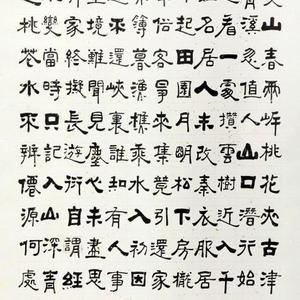 山春兩岸桃花夾古津
溪忽值人山口潛行始
看一處攢雲樹近入千
名居人未改秦衣服居
起田園月明松下房櫳
俗客爭來集競引還家
薄暮漁樵乘水入初因
不還峽裏誰知有人事
境難聞見塵心未盡思
家終擬長遊衍自謂經
變當時只記入山深青
桃花水不辨僊源何處